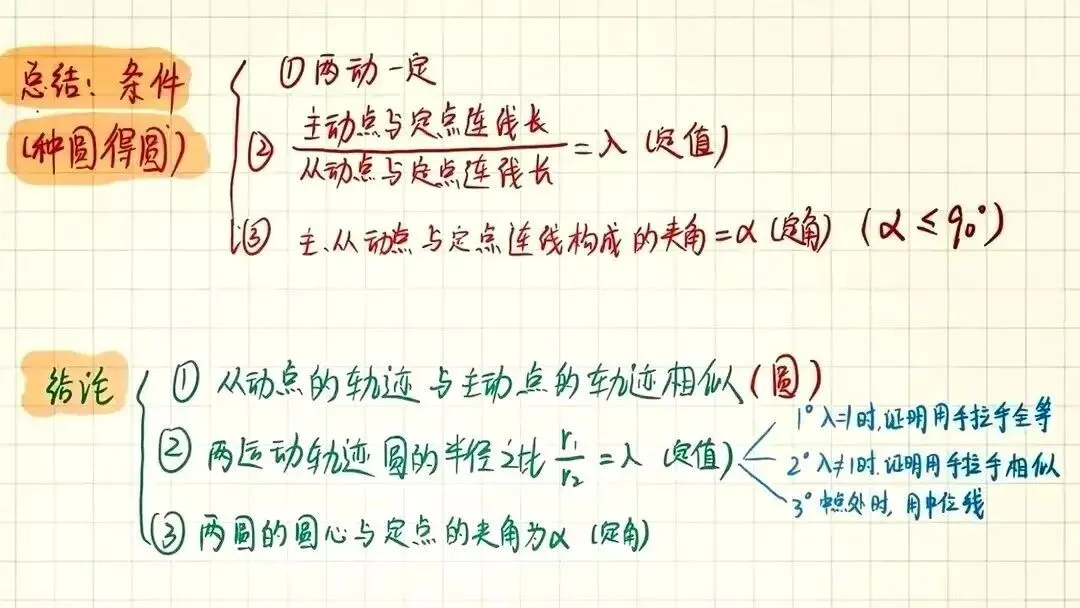 总结：条件
(种圆得圆)
① 两动一定
② 主动点与定点连线长/从动点与定点连线长 = λ (定值)
③ 主、从动点与定点连线构成的夹角=α (定角) (α≤90°)
结论
① 从动点的轨迹与主动点的轨迹相似(圆)
② 两运动轨迹圆的半径之比 r₁/r₂ = λ (定值)
1° λ=1时,证明用手拉手全等
2° λ≠1时.证明用手拉手相似
3° 中点处时, 用中位线
③ 两圆的圆心与定点的夹角为α (定角)